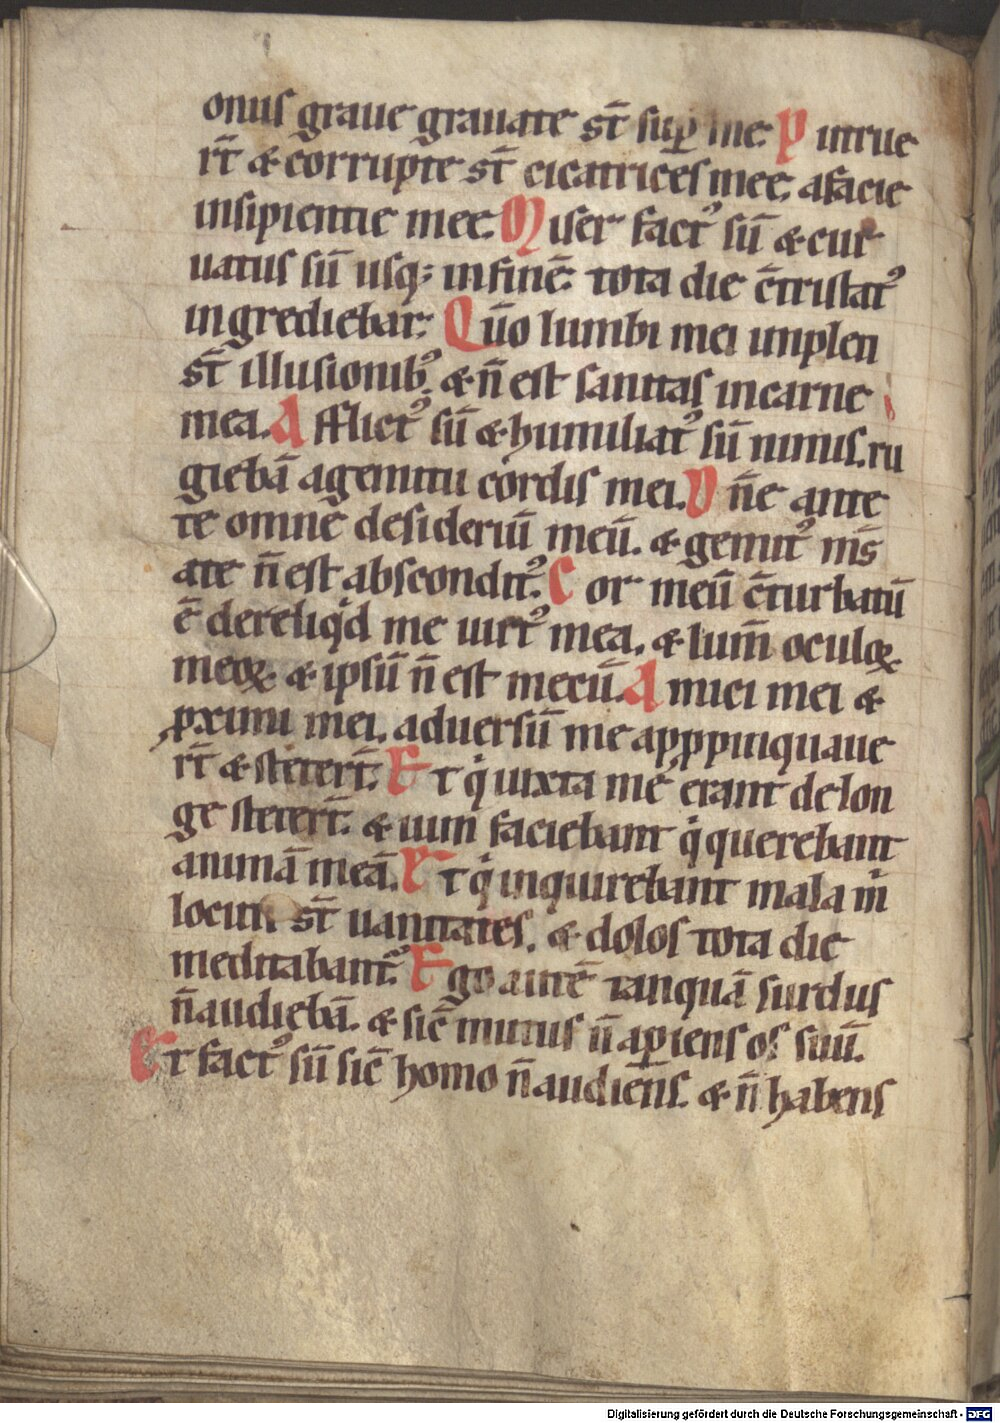 onus graue grauate st̄ suꝑ me. P utrue
rt̄ & corrupte st̄ cicatrices mee, afacie
insipientie mee. M iser factꝰ sū & cur
uatus sū usq; infinē. tota die c̄tristatꝰ
ingrediebar. Q uo̅ lumbi mei impleti
st̄ illusionibꝰ, & n̄ est sanitas incarne
mea. A fflictꝰ sū & humiliatꝰ sū nimis. ru
giebā agemitu cordis mei. D n̄e ante
te omne desideriū meū. & gemitꝰ m̄s
ate n̄ est absconditꝰ. C or meū c̄turbatū
ē dereliqͥd me uirtꝰ mea, & lum̄ oculoꝝ
meoꝝ & ipsū n̄ est mecū. A mici mei &
ꝓximi mei, aduersū me apꝓpinquaue
rt̄ & steterт̄. E t qͥ iuxta me erant delon
ge steterт̄. & uim faciebant qͥ querebant
animā meā. E t qͥ inquirebant mala mͥ
locuti st̄ uanitates, & dolos tota die
meditabantᷣ E go autē tanquā surdus
n̄ audiebā. & sic̄ mutus n̄ aꝑiens os suū.
Et factꝰ sū sic̄ homo n̄ audiens. & n̄ habens
Digitalisierung gefördert durch die Deutsche Forschungsgemeinschaft - DFG